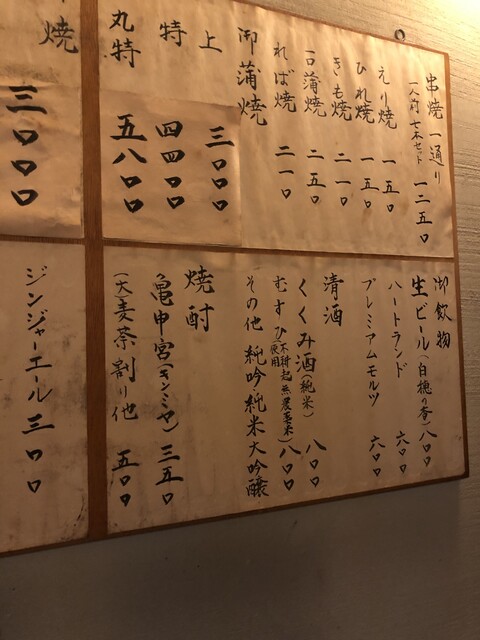 串焼一通り
一人前 七本セット 一二五〇
えり焼 一五〇
ひれ焼 一五〇
きも焼 二一〇
一口蒲焼 二五〇
れば焼 二一〇
御蒲焼
上 三〇〇〇
特 四四〇〇
丸特 五八〇〇
焼 三〇〇〇
御飲物
生ビール(白穂乃香)八〇〇
ハートランド 六〇〇
プレミアムモルツ 六〇〇
清酒
くくみ酒(純米) 八〇〇
むすひ(不耕起無農薬米)使用 八〇〇
その他 純吟純米大吟醸
焼酎
亀甲宮(キンミヤ) 三五〇
(大)麦茶割り他 五〇〇
ジンジャーエール 三〇〇